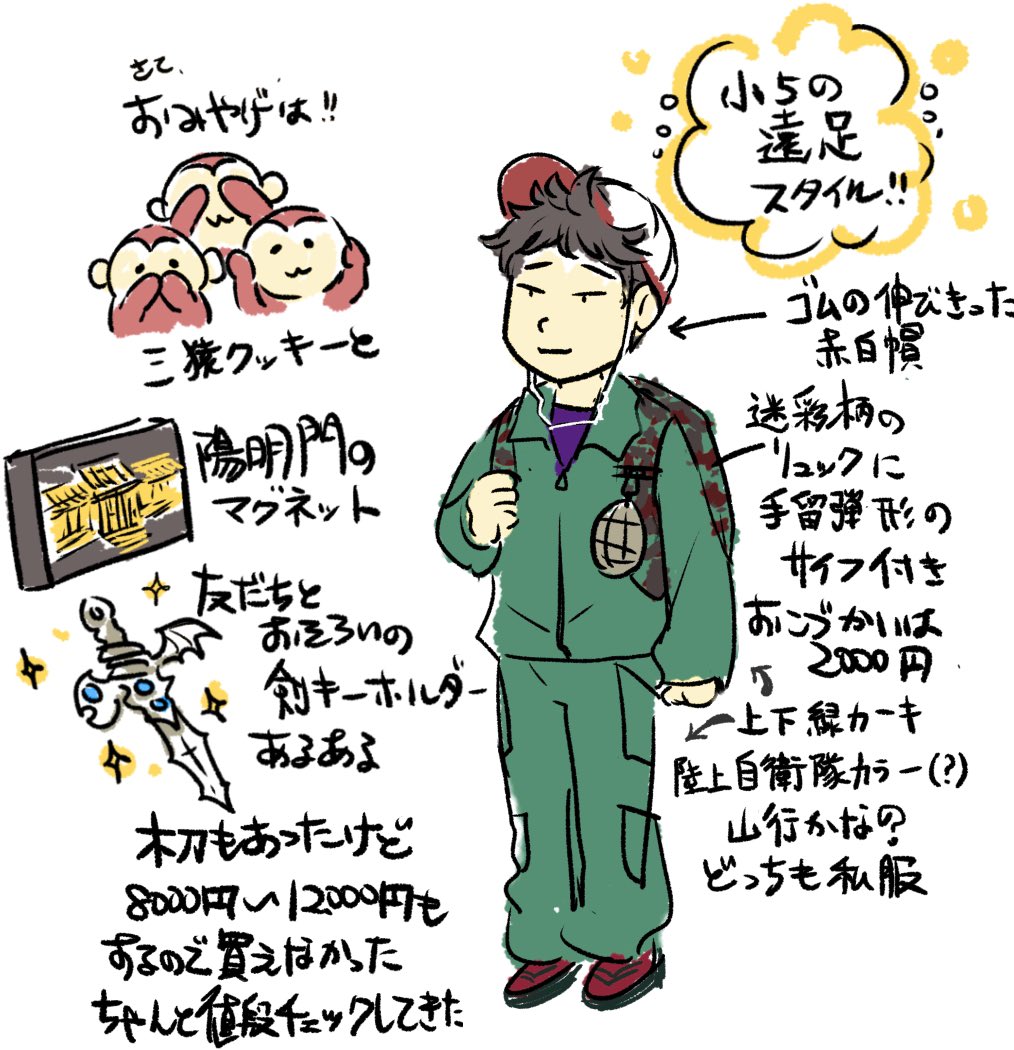 さて、
おみやげは!!
三猿クッキーと
陽明門の
マグネット
友だちと
おそろいの
剣キーホルダー
あるある
木刀もあったけど
8000円〜12000円も
するので買えなかった
ちゃんと値段チェックしてきた
小5の
遠足
スタイル!!
ゴムの伸びきった
赤白帽
迷彩柄の
リュックに
手留弾形の
サイフ付き
おこづかいは
2000円
上下緑カーキ
陸上自衛隊カラー(?)
山行かなの?
どっちも私服